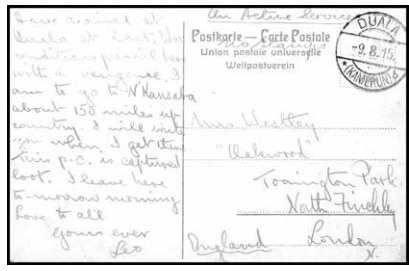 Have arrived at
Duala at last. The
conditions prevail here
with a vengence. I
am to go to N'Kansaba
about 150 miles up
country I will write
you when I get there
This p.c. is captured
loot. I leave here
to-morrow morning
Love to all
Yours ever
Leo
On Active Service
Postkarte — Carte Postale
Union postale universelle
Weltpostverein
DUALA
-9.8.15.
(KAMERUN)
Mrs Westley
"Oakwood"
Torrington Park
North Finchley
London
N.
England